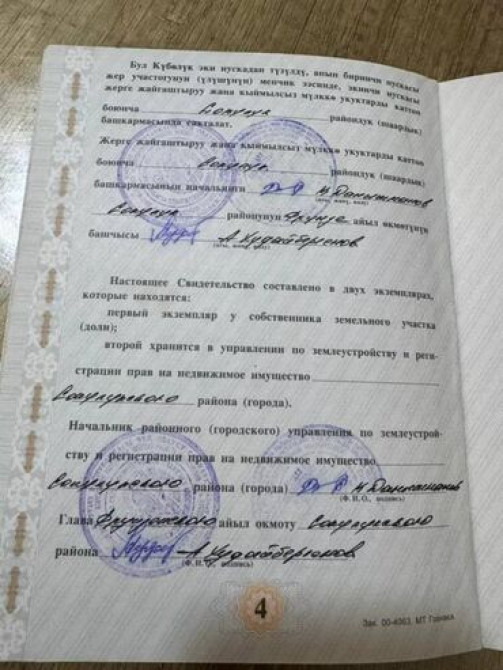 Бул Күбөлүк эки нускадан түзүлдү, анын биринчи нускасы
жер участогунун (үлүшүнүн) менчик ээсинде, экинчи нускасы
жерге жайгаштыруу жана кыймылсыз мүлккө укуктарды каттоо
боюнча Сокулук райондук (шаардык)
башкармасында сакталат.
Жерге жайгаштыруу жана кыймылсыз мүлккө укуктарды каттоо
боюнча Сокулук райондук (шаардык)
башкармасынын начальниги
Сокулук районунун Фрунзе айыл өкмөтүнүн
башчысы А Худайбергенов
Настоящее Свидетельство составлено в двух экземплярах,
которые находятся:
первый экземпляр у собственника земельного участка
(доли);
второй хранится в управлении по землеустройству и реги-
страции прав на недвижимое имущество
Сокулукского района (города).
Начальник районного (городского) управления по землеустрой-
ству и регистрации прав на недвижимое имущество
Сокулукского района (города)
(Ф. И. О., подпись)
Глава Фрунзенского айыл окмоту Сокулукского
района А Худайбергенов
(Ф. И. О., подпись)
4
Зак. 00-4063. МТ Гознака.